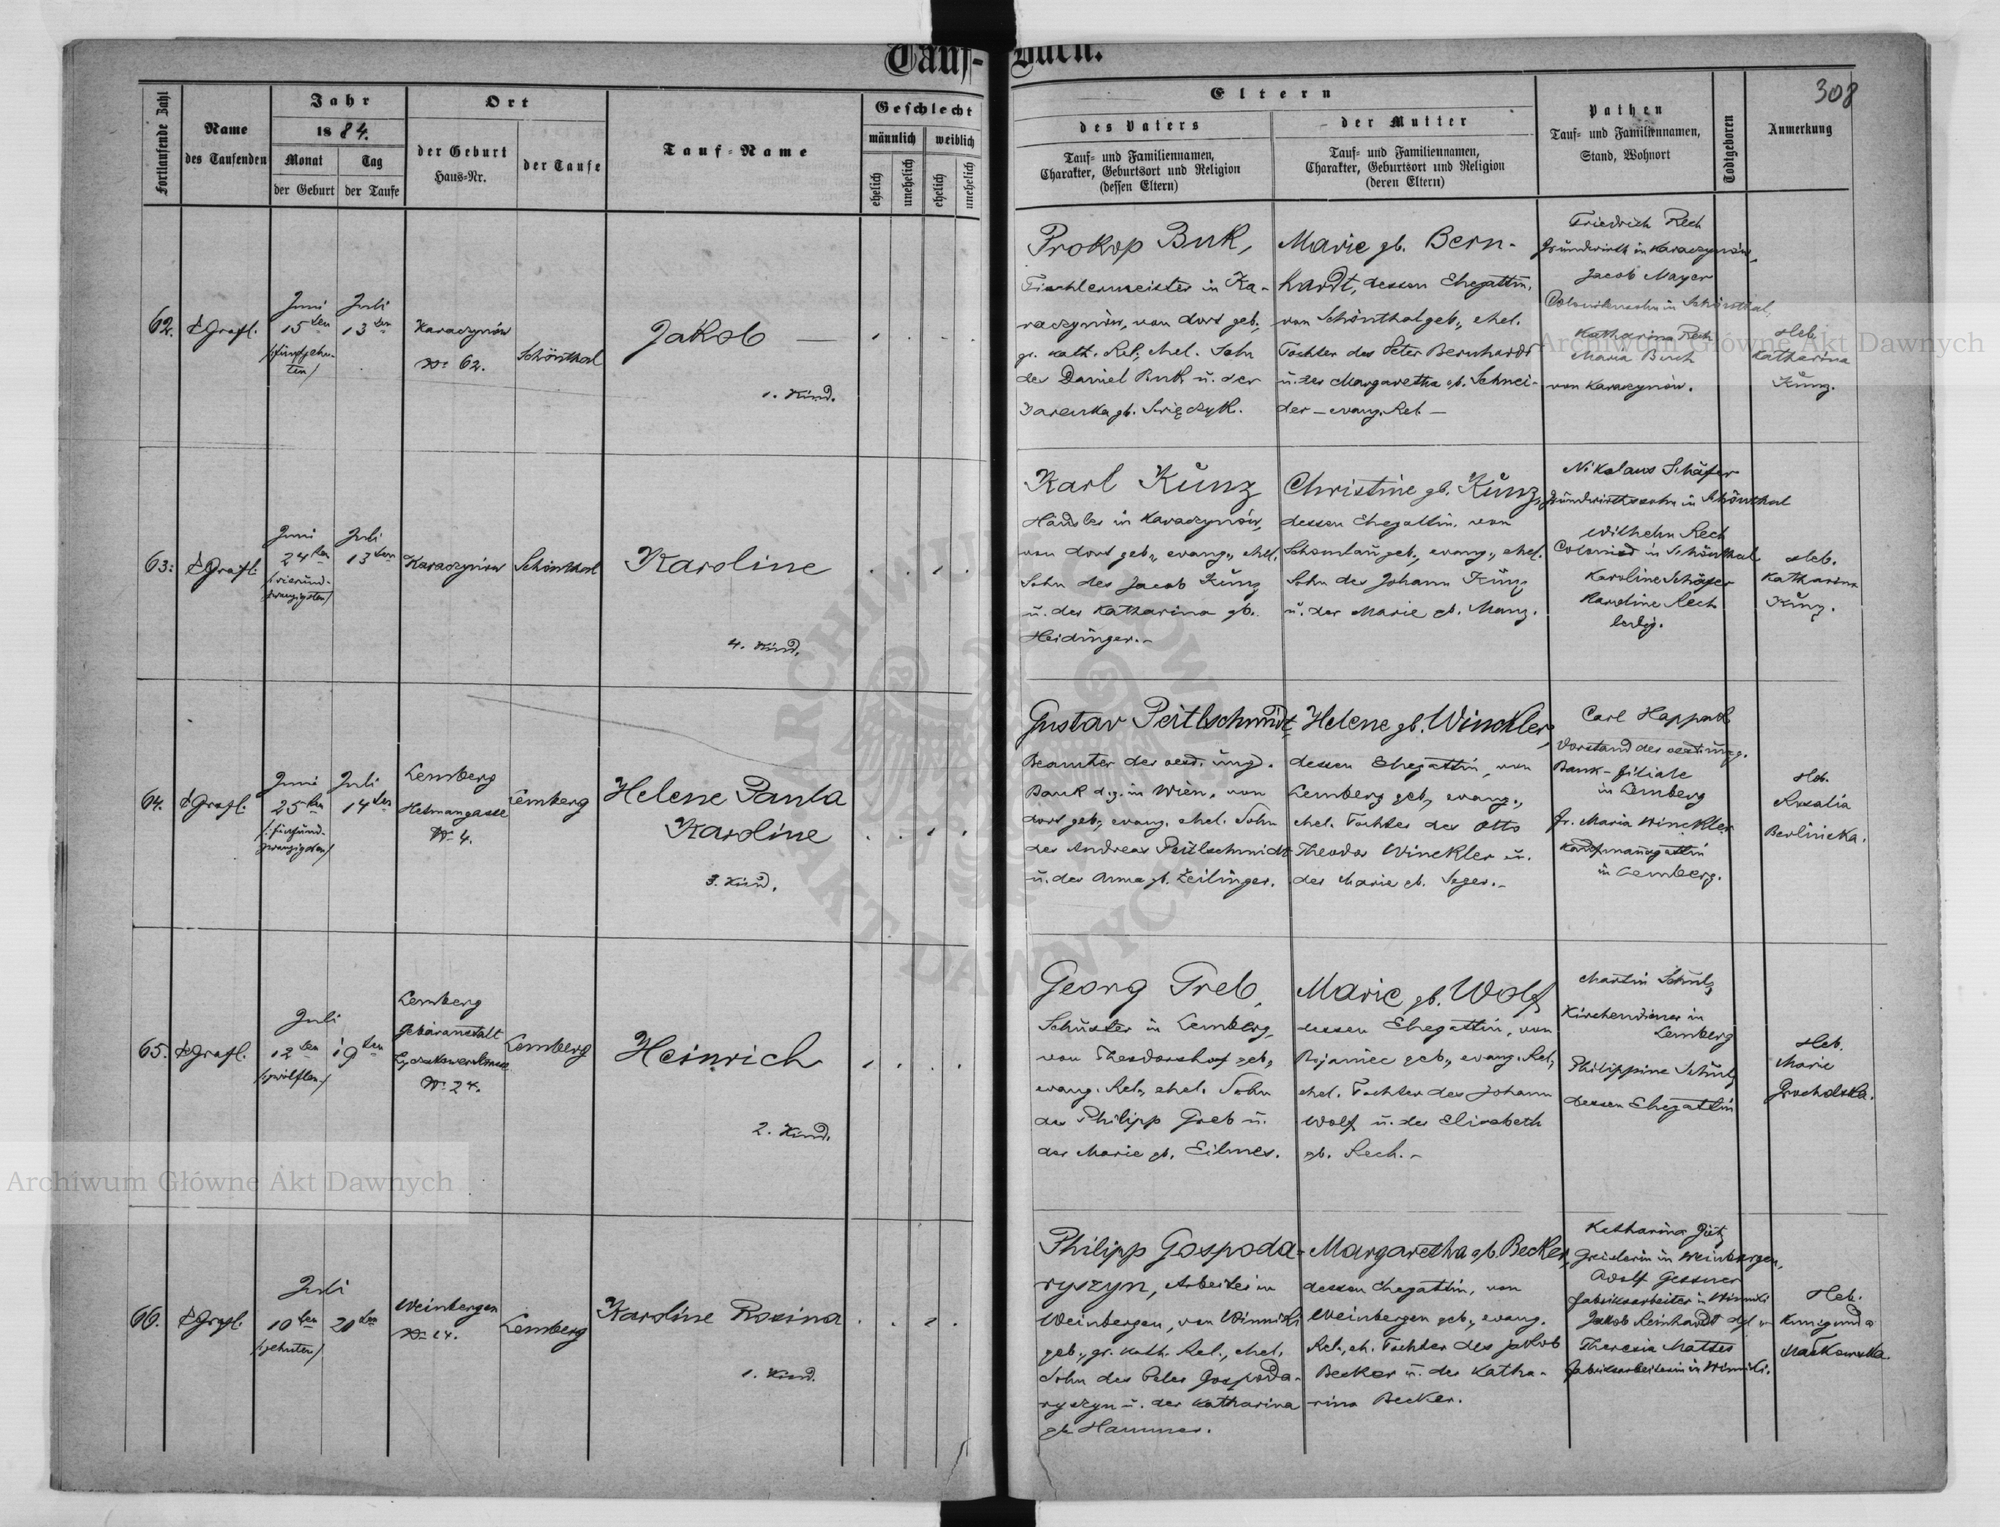 Tauf-Buch.
308
Fortlaufende Zahl
Name
des Taufenden
Jahr
1884.
Monat
Tag
der Geburt
der Taufe
Ort
der Geburt
Haus-Nr.
der Taufe
Tauf-Name
Geschlecht
männlich
weiblich
ehelich
unehelich
ehelich
unehelich
Eltern
des Vaters
Tauf- und Familiennamen,
Charakter, Geburtsort und Religion
(dessen Eltern)
der Mutter
Tauf- und Familiennamen,
Charakter, Geburtsort und Religion
(deren Eltern)
Pathen
Tauf- und Familiennamen,
Stand, Wohnort
Todtgeboren
Anmerkung
62.
Juni
15ten
/:fünfzehn-
ten/
Juli
13ten
Karaczynów
No 62.
Schönthal
Jakob —
1. Kind.
Prokop Buk,
Tischlermeister in Ka-
raczynów, von dort geb.,
gr. kath. Rel., ehel. Sohn
des Daniel Buk u. der
gb.
Marie gb. Bern-
hardt, dessen Ehegattin,
von Schönthal geb., ehel.
Tochter des Peter Bernhardt
u. der Margaretha gb. Schnei-
der — evang. Rel. —
Friedrich Rech
Grundwirth in Karaczynów,
Jacob Mayer
in Schönthal,
Katharina Rech
Maria
von Karaczynów.
Heb.
Katharina
Künz.
63.
Juni
24ten
/:vierund-
zwanzigsten/
Juli
13ten
Karaczynów
Schönthal
Karoline
4. Kind.
Karl Künz
Häusler in Karaczynów,
von dort geb., evang., ehel.
Sohn des Jacob Künz
u. der Katharina gb.
Heidinger.-
Christine gb. Künz,
dessen Ehegattin, von
geb., evang., ehel.
Sohn des Johann Künz
u. der Marie gb. Manz.
Nikolaus Schäfer
Grundwirthssohn in Schönthal
Wilhelm Rech
Colonist in Schönthal
Karoline Schäfer
Karoline Rech
ledig.
Heb.
Katharina
Künz.
64.
Juni
25ten
/:fünfund-
zwanzigsten/
Juli
14ten
Lemberg
Hetmangasse
No 4.
Lemberg
Helene Paula
Karoline
3. Kind.
Gustav Peitlschmidt,
Beamter der oest. ung.
Bank d.z. in Wien, von
dort geb., evang. ehel. Sohn
des Andreas Peitlschmidt
u. der Anna gb. Zeilinger.
Helene gb. Winckler,
dessen Ehegattin, von
Lemberg geb., evang.,
ehel. Tochter des Otto
Theodor Winckler u.
der Marie gb. Seger.-
Carl
Vorstand der oest. ung.
Bank-Filiale
in Lemberg
Fr. Maria Winckler
Kaufmannsgattin
in Lemberg.
Heb.
Rosalia
Berlinska.
65.
Juli
12ten
/:zwölften/
19ten
Lemberg
Gebäranstalt
No 24.
Lemberg
Heinrich
2. Kind.
Georg Greb,
Schuster in Lemberg,
von Theodorshof geb.,
evang. Rel., ehel. Sohn
des Philipp Greb u.
der Marie gb. Eilmes.
Marie gb. Wolf
dessen Ehegattin, von
geb., evang. Rel.,
ehel. Tochter des Johann
Wolf u. der Elisabeth
gb. Rech.-
Martin Schulz
Kirchendiener in
Lemberg
Philippine Schulz
dessen Ehegattin
Heb.
Marie
Grocholska.
66.
Juli
10ten
/:zehnten/
20ten
Weinbergen
No 24.
Lemberg
Karoline Rosina
1. Kind.
Philipp Gospoda-
ryszyn, Arbeiter in
Weinbergen, von Winniki
geb., gr. kath. Rel., ehel.
Sohn des Peter Gospoda-
ryszyn u. der Katharina
gb. Hammer.
Margaretha gb. Becker,
dessen Ehegattin, von
Weinbergen geb., evang.
Rel., eh. Tochter des Jakob
Becker u. der Katha-
rina Becker.
Katharina
in Weinbergen,
Adolf Gessner
Fabriksarbeiter in Winniki
Jakob Reinhardt
Theresia Mattes
Fabriksarbeiterin in Winniki.
Heb.
Kunigunda
Maćkowska.
Archiwum Główne Akt Dawnych
Archiwum Główne Akt Dawnych
ARCHIWUM GŁÓWNE AKT DAWNYCH